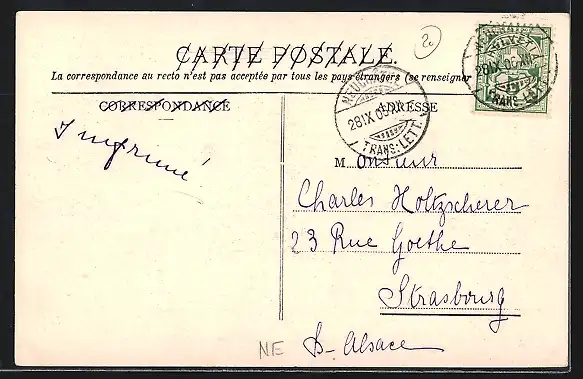 CARTE POSTALE.
La correspondance au recto n'est pas acceptée par tous les pays étrangers (se renseigner
CORRESPONDANCE
ADRESSE
NEUCHATEL
28 IX 09
TRANS: LETT.
NEUCHATEL
28 IX 09
TRANS: LETT.
HELVETIA
Imprimé
Monsieur
Charles Holtzscherer
23 Rue Goethe
Strasbourg
B- Alsace
NE